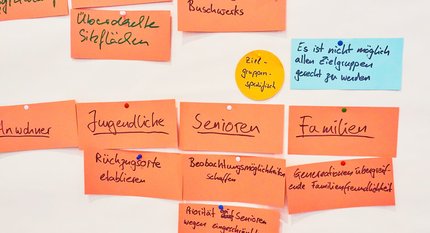 Überdachte
Sitzflächen
Buschwerks
Ziel-
gruppen-
spezifisch
Es ist nicht möglich
allen Zielgruppen
gerecht zu werden
Anwohner
Jugendliche
Senioren
Familien
Rückzugsorte
etablieren
Beobachtungsmöglichkeiten
schaffen
Generationenübergreif-
ende Familienfreundlichkeit
Priorität auf Senioren
wegen